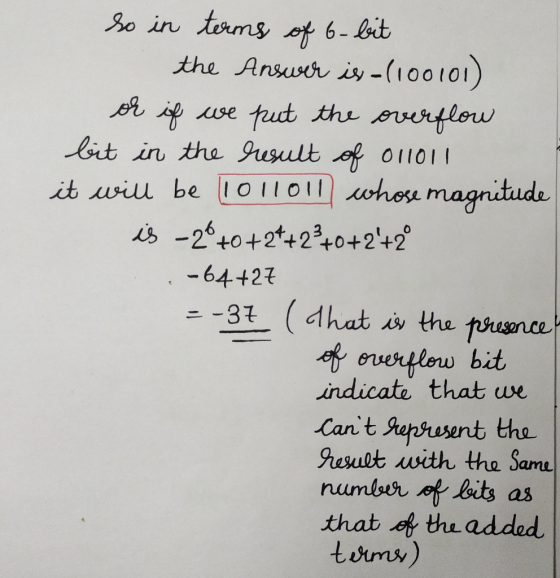 So in terms of 6-bit
the Answer is -(100101)
or if we put the overflow
bit in the result of 011011
it will be 1011011 whose magnitude
is -2⁶+0+2⁴+2³+0+2¹+2⁰
-64+27
= -37 (That is the presence
of overflow bit
indicate that we
can't represent the
result with the Same
number of bits as
that of the added
terms)